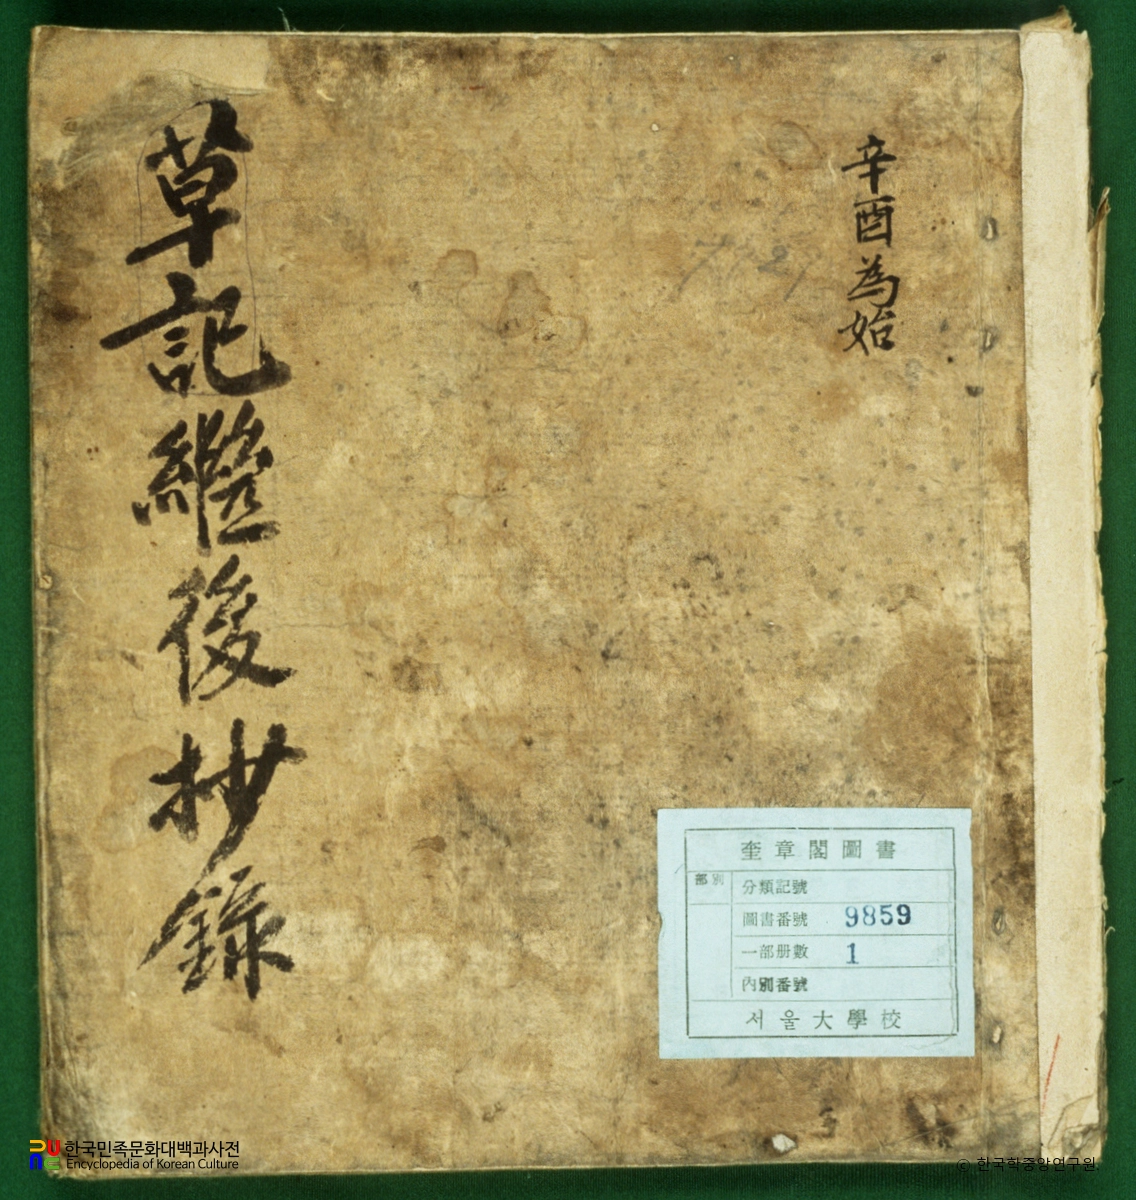 辛酉為始
草記繼後抄錄
奎章閣圖書
部別
分類記號
圖書番號 9859
一部册數 1
內別番號
서울大學校
한국민족문화대백과사전
Encyclopedia of Korean Culture
© 한국학중앙연구원